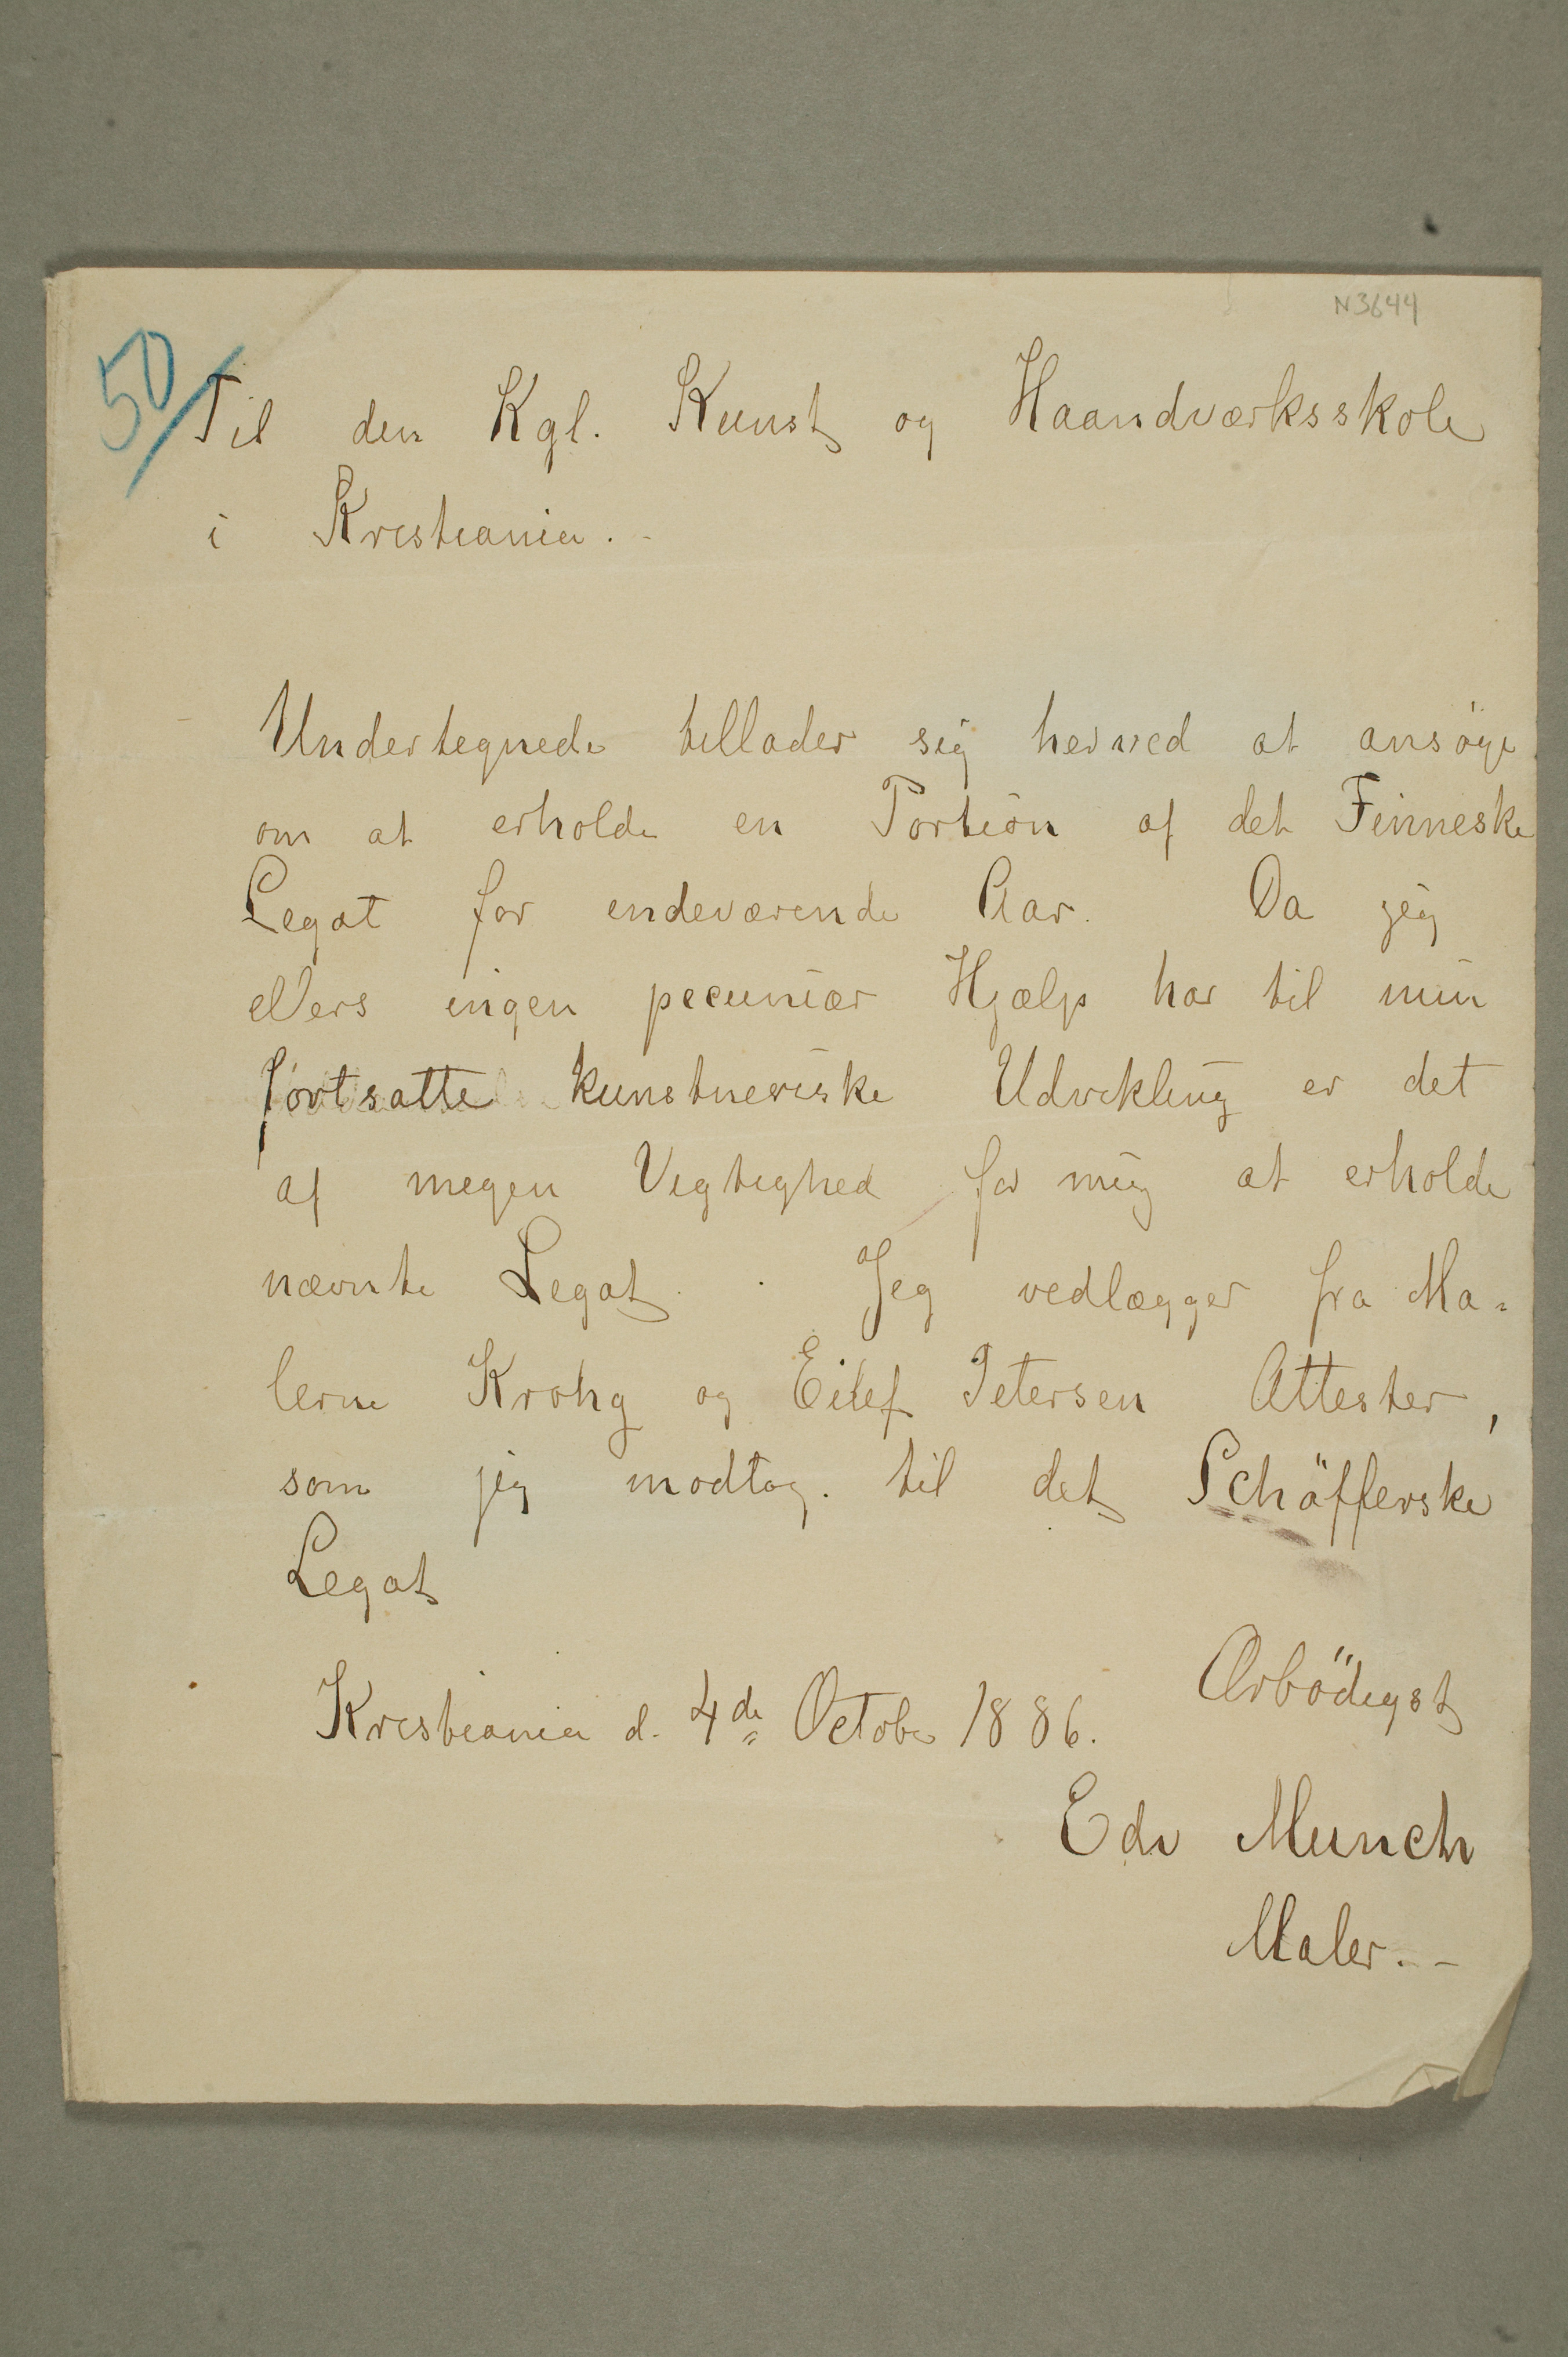 N3644
50
Til den Kgl. Kunst og Haandværksskole
i Kristiania.-
Undertegnede tillader sig herved at ansöge
om at erholde en Portion af det Finneske
Legat for indeværende Aar. Da jeg
ellers ingen pecuniær Hjælp har til min
fortsatte kunstneriske Udvikling er det
af megen Vigtighed for mig at erholde
nævnte Legat. Jeg vedlægger fra Ma=
lerne Krohg og Eilef Petersen Attester,
som jeg modtog. til det Schäfferske
Legat
Ærbödigst
Kristiania d. 4de October 1886.
Edv Munch
Maler.-